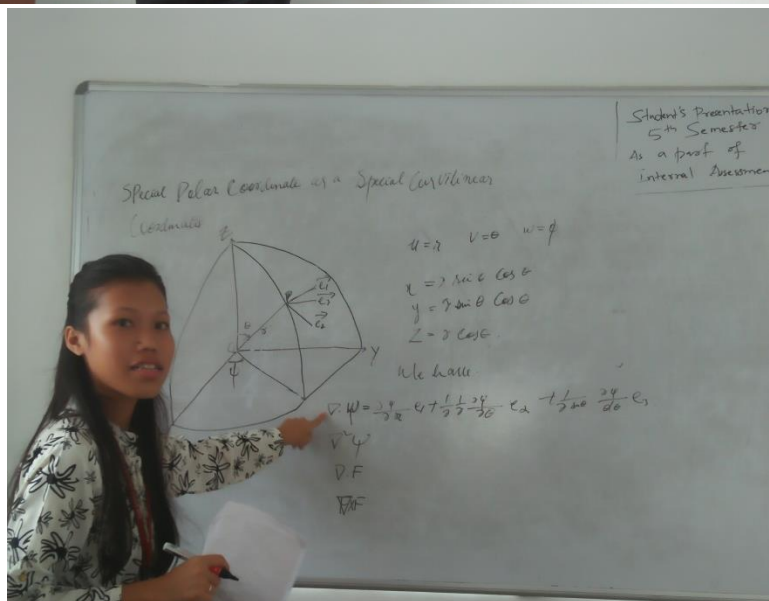 Student's Presentation
5th Semester
As a part of
internal Assessmen
Special Polar Coordinate as a Special Curvilinear
Coordinates
Z
P
e₁
e₃
e₂
θ
r
Y
ψ
u = r v = θ w = φ
x = r sin θ cos θ
y = r sin θ cos θ
Z = r cos θ
We have
∇·ψ = ∂ψ/∂r e₁ + 1/r ∂ψ/∂θ e₂ + 1/r sin θ ∂ψ/∂θ e₃
∇²ψ
∇·F
∇×F